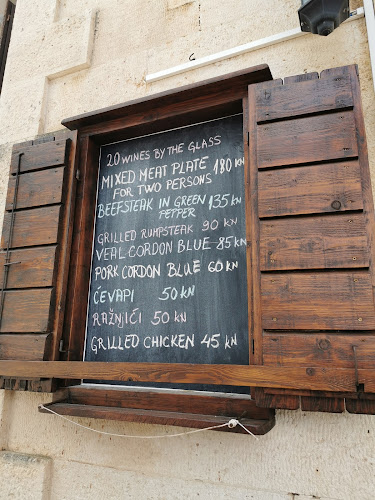 20 WINES BY THE GLASS
MIXED MEAT PLATE 180 KN
FOR TWO PERSONS
BEEFSTEAK IN GREEN 135 KN
PEPPER
GRILLED RUMPSTEAK 90 KN
VEAL CORDON BLUE 85 KN
PORK CORDON BLUE 60 KN
ĆEVAPI 50 KN
RAŽNJIĆI 50 KN
GRILLED CHICKEN 45 KN